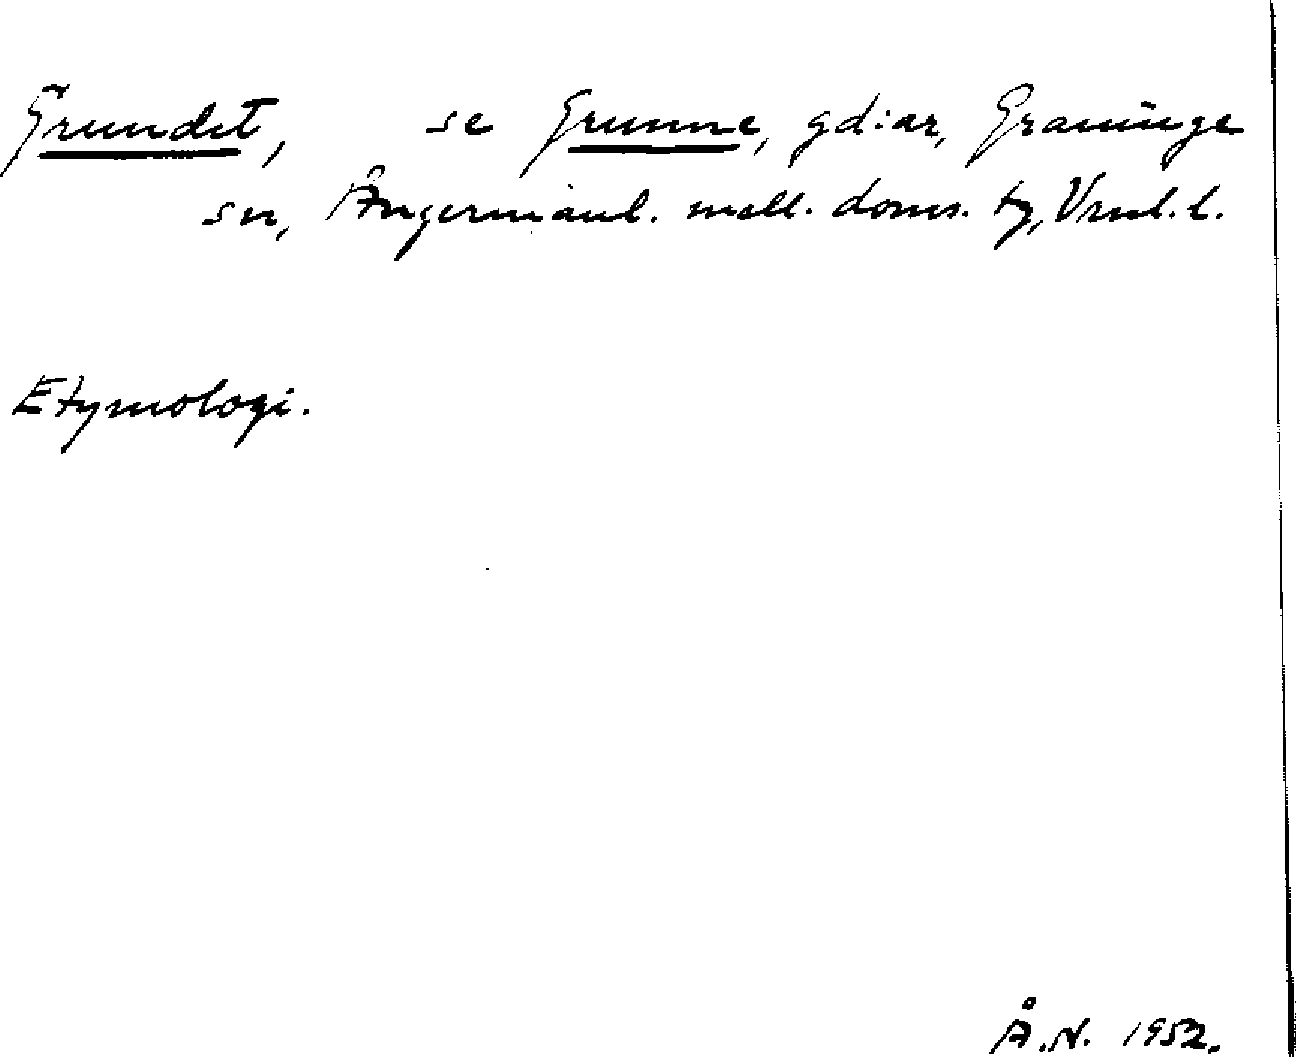 Grundet, se Grunne, gd:ar, Graninge
sn, Ångermanl. mell. doms. tg, Vrnl. l.
Etymologi.
Å.N. 1952.